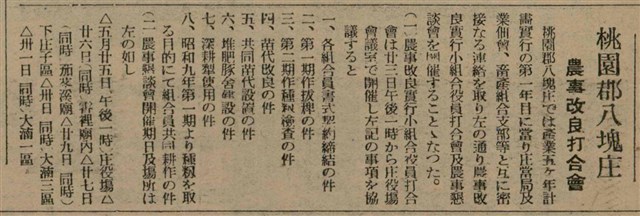 桃園郡八塊庄
農事改良打合會
桃園郡八塊庄では產業五ケ年計
畫實行の第一年目に當り庄當局及
業佃會、畜產組合支部等と互に密
接なる連絡を取り左の通り農事改
良實行小組合役員打合會及農事懇
談會を開催することゝなつた。
(一)農事改良實行小組合役員打合
會は廿三日午後一時から庄役場
會議室で開催し左記の事項を協
議すると
一、各組合員書式契約締結の件
二、第一期作拔稗の件
三、第一期作種籾檢查の件
四、苗代改良の件
五、共同苗代設置の件
六、堆肥豚舍建設の件
七、深耕犁使用の件
八、昭和九年第一期より種籾を取
る目的にて組合員共同耕作の件
(二)農事懇談會開催期日及場所は
左の如し
△五月廿五日、午後一時)庄役場△
廿六日(同時)霄裡廟內△廿七日
(同時)茄苳溪廟△廿九日 同時)
下庄子區△卅日(同時)大湳三區
△卅一日(同時)大湳一區